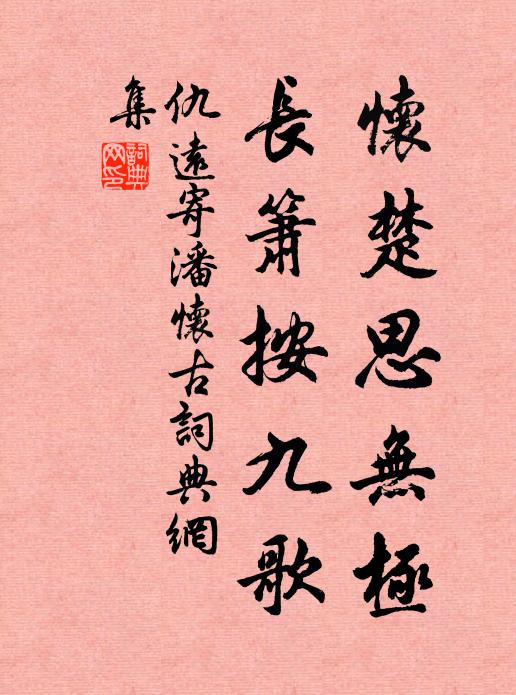 懷楚思無極
長簫按九歌
仇遠寄潘懷古詞典網
集
詞典網印